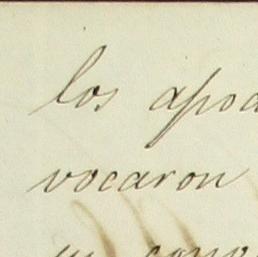 los apod
vocaron